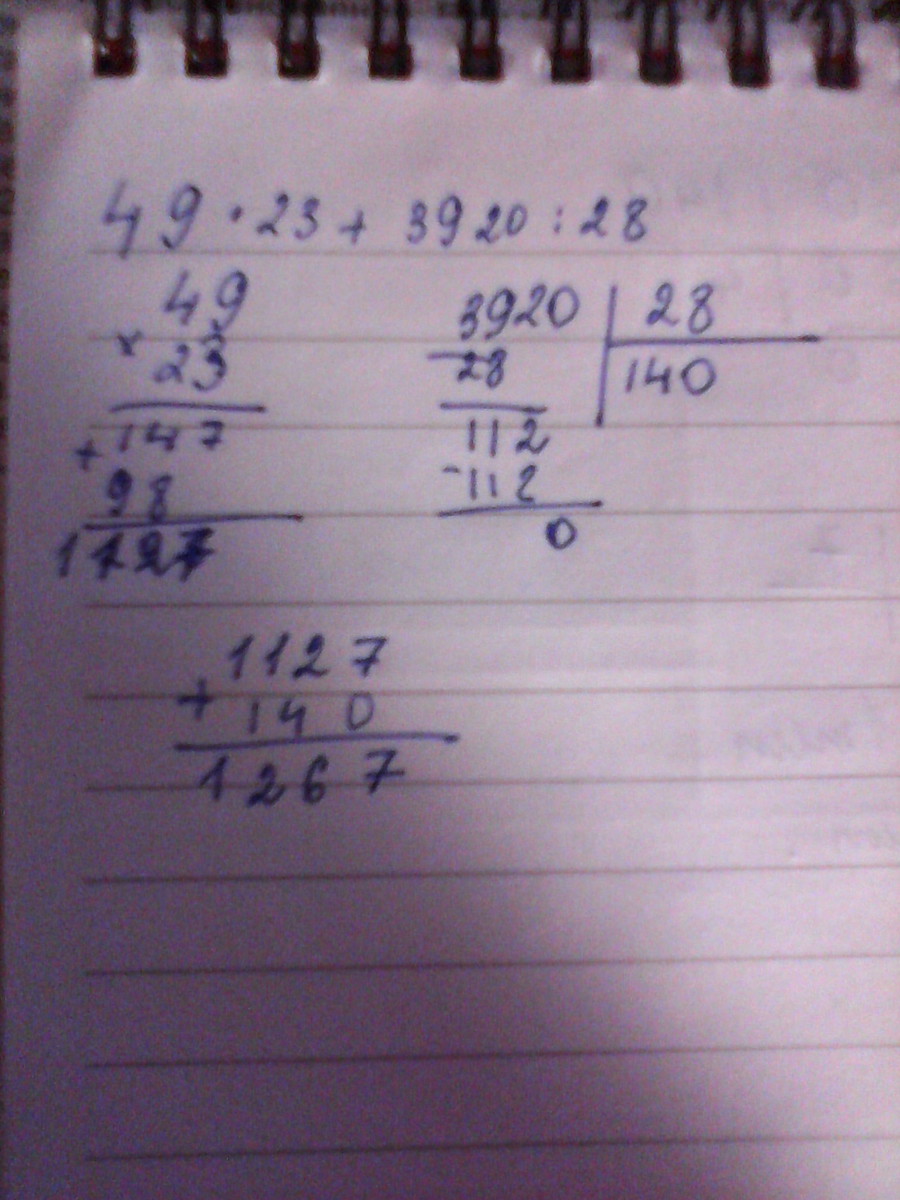 49 · 23 + 3920 : 28
49
× 23
+ 147
98
1127
3920 | 28
- 28 140
112
- 112
0
1127
+ 140
1267